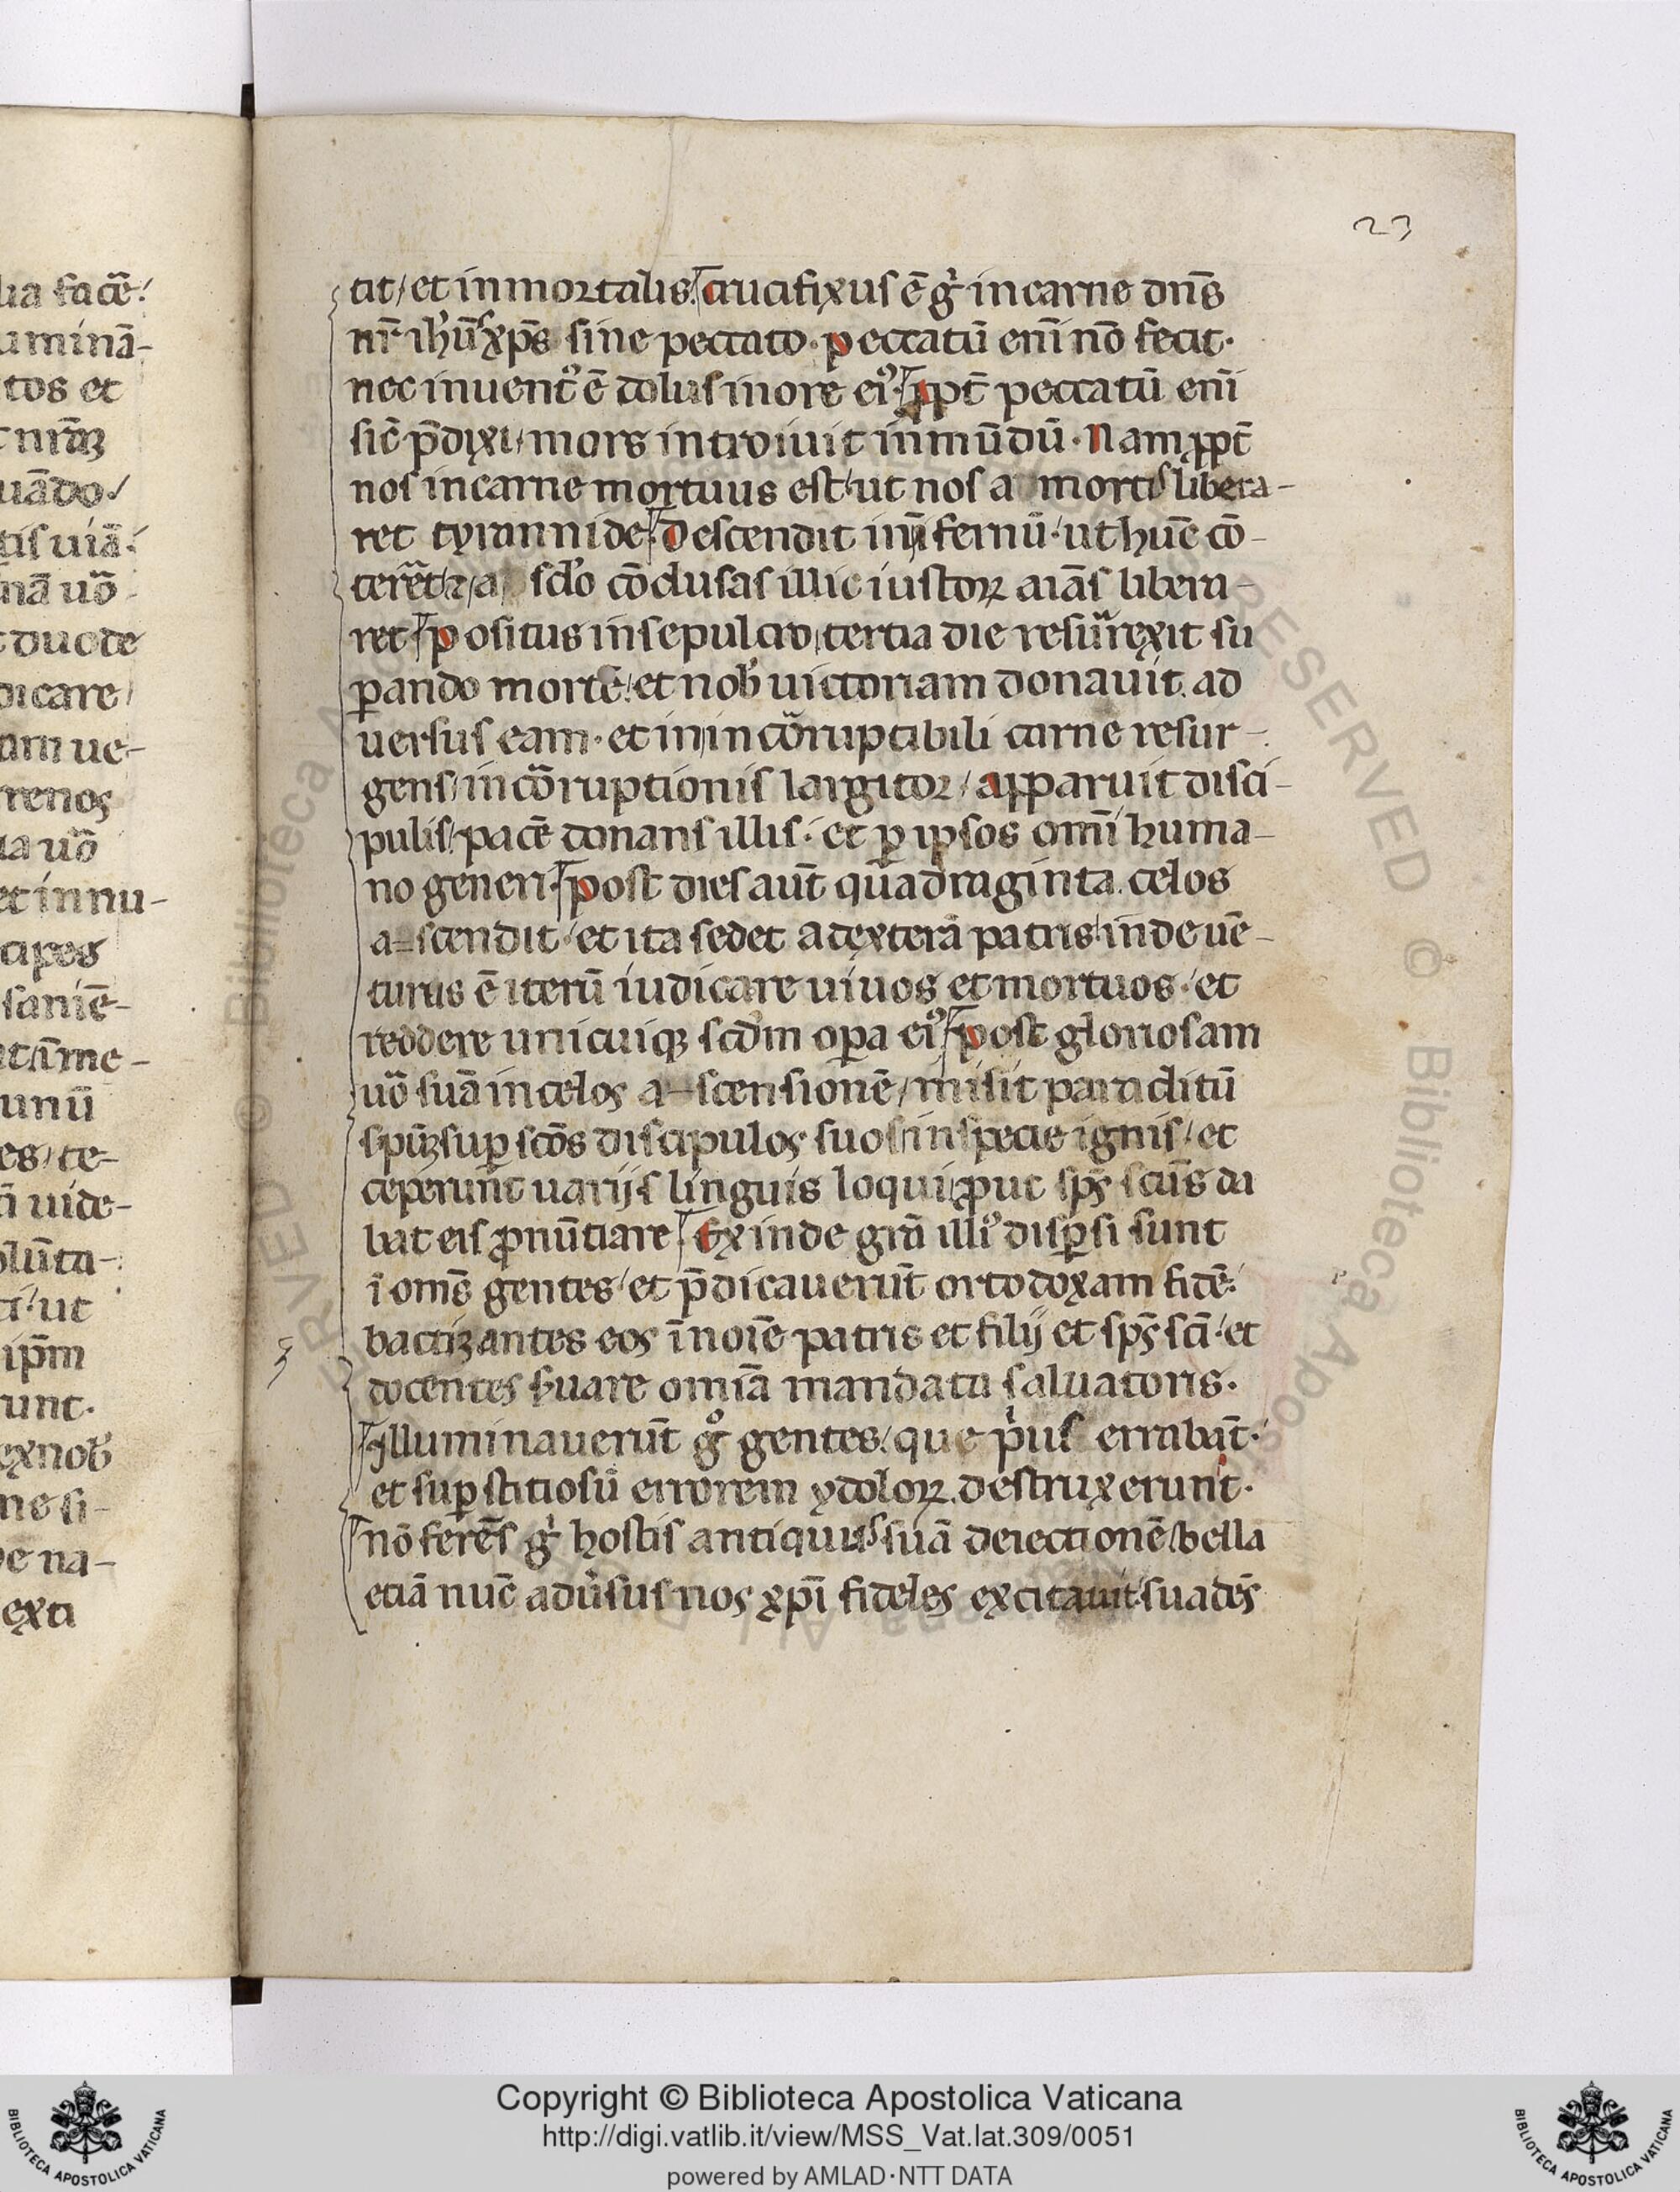 23
tit / et inmortalis. crucifixus ē g̉ in carne dn̄s
nr̄ ih̓ūs xp̄s sine peccato. peccatū eni̅ nō fecit.
nec inuent᷒ ē dolus in ore ei᷒. ꝓpt̄ peccatū eni̅
sic̄ p̄dixi / mors introiuit in mūdū. Nam ꝓpt̄
nos in carne mortuus est / ut nos a mortis libera-
ret tyrannide. Descendit in īfernū / ut hūc cō-
terēt
sclo cōclusas illic iustoꝝ aiās libera-
ret. positus in sepulcro / tertia die resurrexit su
ꝑando mortē / et nob̓ uictoriam donauit ad
uersus eam. et in incōruptibili carne resur-
gens / incōruptionis largitor / apparuit disci-
pulis / pacē donans illis / et ꝑ ipsos om̄i huma-
no generi. post dies aut̄ quadraginta celos
a-scendit / et ita sedet a dexterā patris / inde uē-
turus ē iterū iudicare uiuos et mortuos / et
reddere unicuiqꝫ scdm oꝑa ei᷒. post gloriosam
uō suā in celos a-scensionē / misit paraclitū
spm̄ suꝑ scōs discipulos suos in specie ignis / et
ceperunt uarijs linguis loqui / ꝓut sps̄ scūs da
bat eis ꝓnūtiare. Exinde grā illi᷒ disꝑsi sunt
ī om̄s gentes / et p̄dicauerūt ortodoxam fidē /
baptizantes eos ī noīe patris et filij et sps̄ sc̄i / et
docentes s̓uare om̄ia mandata saluatoris.
Illuminauerūt g° gentes / que pius errabāt /
et suꝑstitiosū errorem ydoloꝝ destruxerunt.
nō ferēs g̉ hostis antiquus suā deiectionē / bella
etiā nūc adūsus nos xp̄i fideles excitauit / suadēs
lia facē /
uminā-
tos et
uādo /
tis uiā /
nā uō
duode
dicare /
am ue-
renos
ta uō
et innu-
cipes
saniē-
unū
es / te-
uide-
olūta-
ti / ut
ip̄m
runt.
ex nob̓
ne si-
de na-
exti
Copyright © Biblioteca Apostolica Vaticana
http://digi.vatlib.it/view/MSS_Vat.lat.309/0051
powered by AMLAD·NTT DATA
BIBLIOTECA APOSTOLICA VATICANA
BIBLIOTECA APOSTOLICA VATICANA